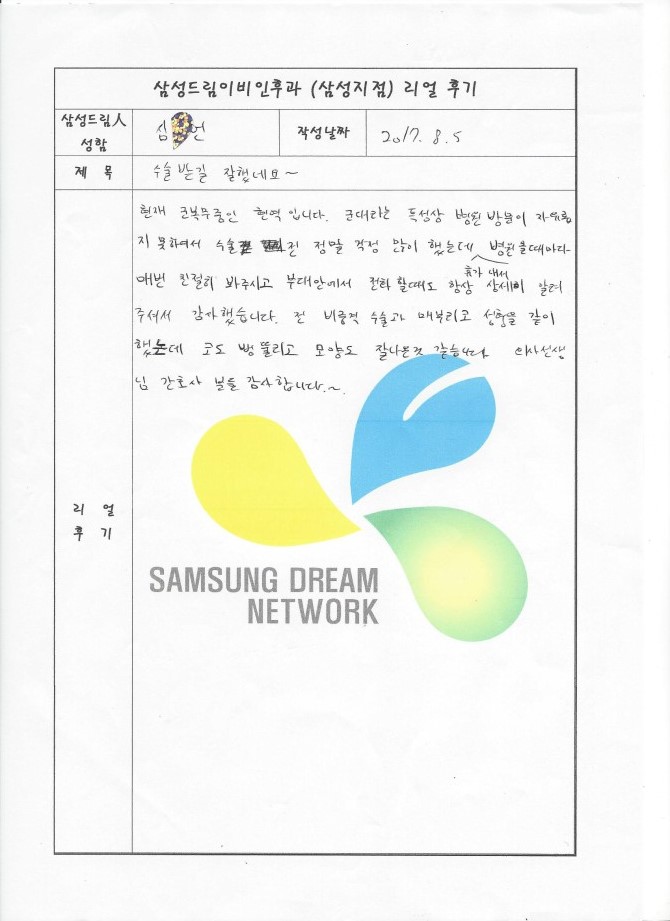 삼성드림이비인후과 (삼성지점) 리얼 후기
삼성드림人 성함
심 언
작성날짜
2017. 8. 5
제 목
수술 받길 잘했네요~
리 얼 후 기
현재 군복무중인 현역 입니다. 군대라는 특성상 병원 방문이 자유롭
지 못하여서 수술 전 정말 걱정 많이 했는데 휴가 내서 병원 올때마다
매번 친절히 봐주시고 부대안에서 전화 할때도 항상 상세히 알려
주셔서 감사했습니다. 전 비중격 수술과 매부리코 성형을 같이
했는데 코도 뻥 뚫리고 모양도 잘나온것 같습니다 의사선생
님 간호사 분들 감사합니다.~.
SAMSUNG DREAM
NETWORK